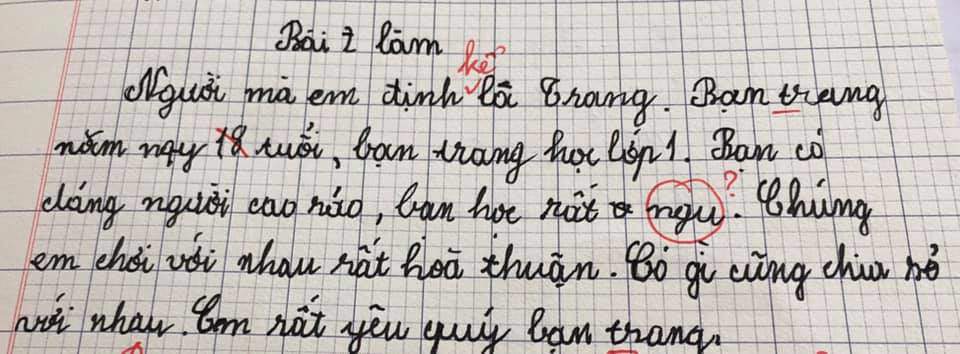 Bài làm
kể
Người mà em định là Trang. Bạn trang
năm nay 18 tuổi, bạn trang học lớp 1. Bạn có
dáng người cao ráo, bạn học rất ngu. ? Chúng
em chơi với nhau rất hoà thuận. Có gì cũng chia sẻ
với nhau. Em rất yêu quý bạn trang.